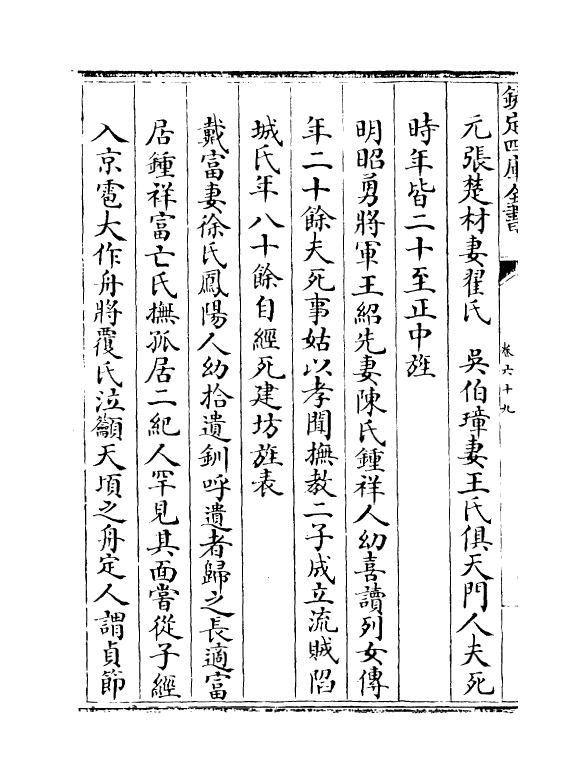 欽定四庫全書
卷六十九
元張楚材妻翟氏　吳伯璋妻王氏俱天門人夫死
時年皆二十至正中旌
明昭勇將軍王紹先妻陳氏鍾祥人幼喜讀列女傳
年二十餘夫死事姑以孝聞撫教二子成立流賊陷
城氏年八十餘自經死建坊旌表
戴富妻徐氏鳳陽人幼拾遺釧呼遺者歸之長適富
居鍾祥富亡氏撫孤居二紀人罕見其面嘗從子經
入京雹大作舟將覆氏泣籲天頃之舟定人謂貞節